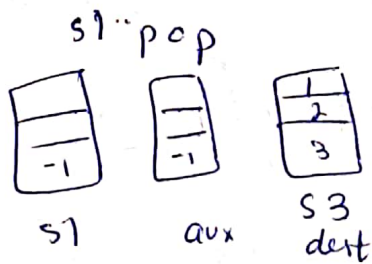 s1.. pop
1
2
-1 -1 3
s1 aux s3
dest